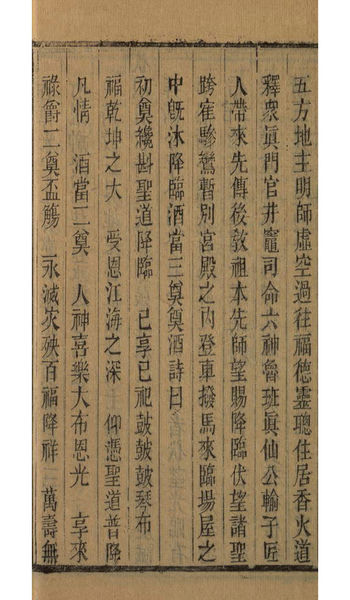 五方地主明師虛空過往福德靈聰住居香火道
釋衆眞門官井竈司命六神魯班眞仙公輸子匠
人帶來先傳後敎祖本先師望賜降臨伏望諸聖
跨隺驂鸞暫別宮殿之內登車撥馬來臨場屋之
中旣沐降臨酒當三奠奠酒詩曰
初奠纔斟聖道降臨 已享已祀皷皷皷琴布
福乾坤之大 受恩江海之深 仰憑聖道普降
凡情 酒當二奠 人神喜樂大布恩光 享來
祿爵二奠盃觴 永滅灾殃百福降祥 萬壽無